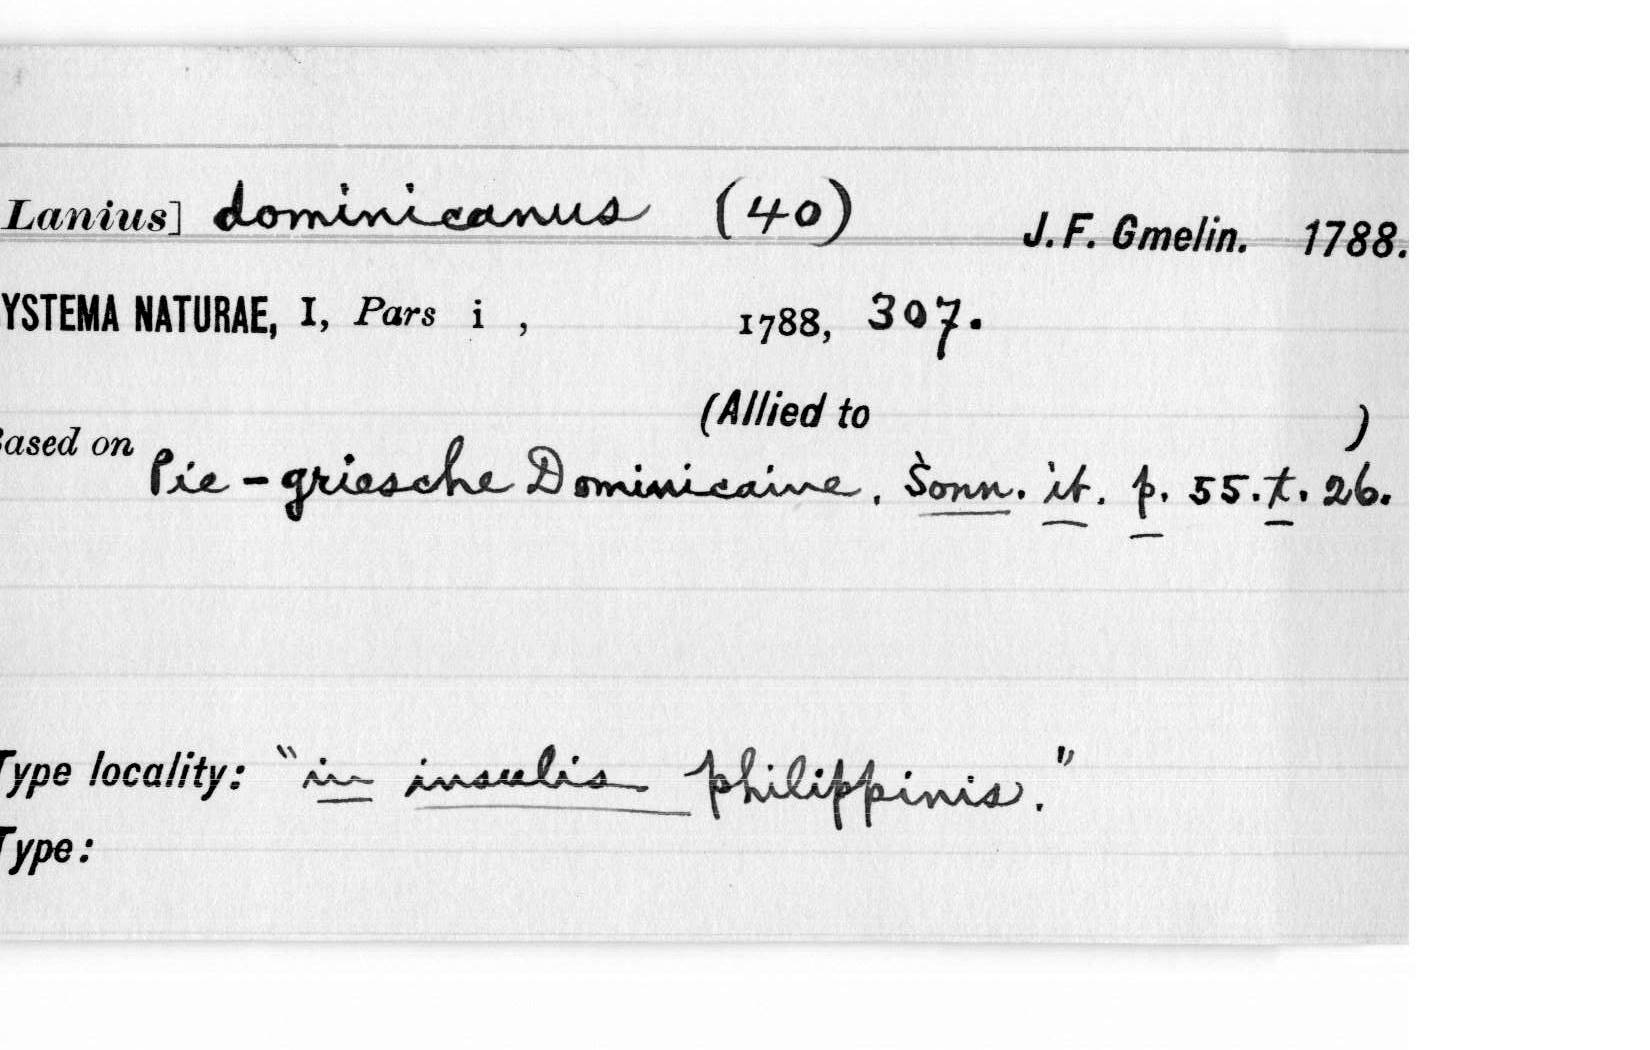 Lanius] dominicanus (40) J. F. Gmelin. 1788.
YSTEMA NATURAE, I, Pars i , 1788, 307.
(Allied to )
ased on Pie-griesche Dominicaine. Sonn. it. p. 55. t. 26.
Type locality: "in insulis philippinis."
Type: